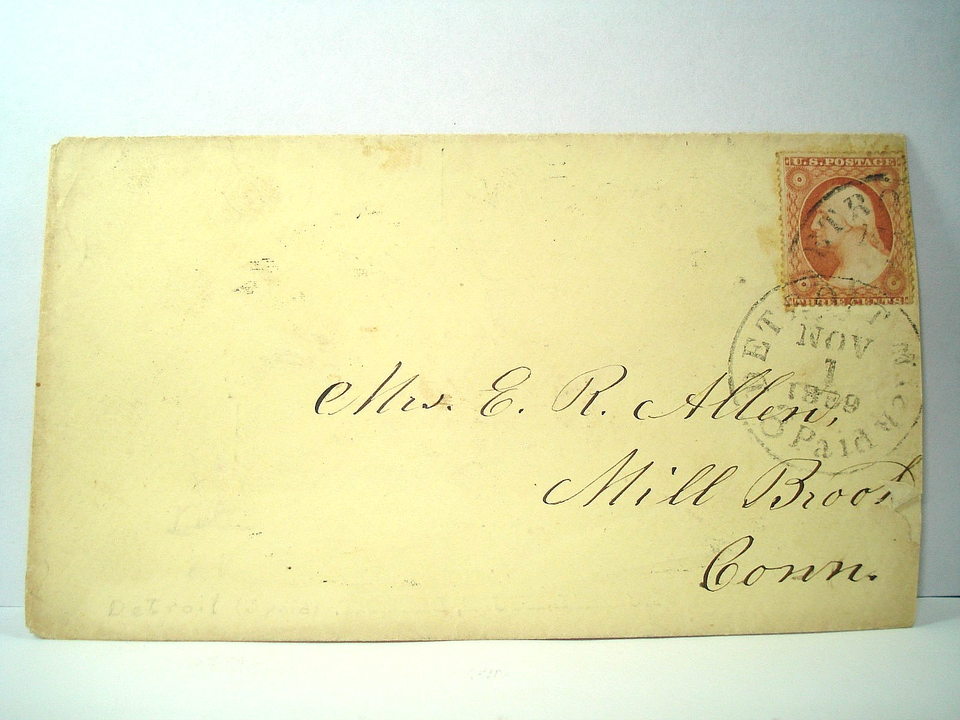 U.S. POSTAGE
THREE CENTS
DETROIT MICH
NOV
1
1859
Paid
Mrs. E. R. Allen,
Mill Brook
Conn.
Detroit